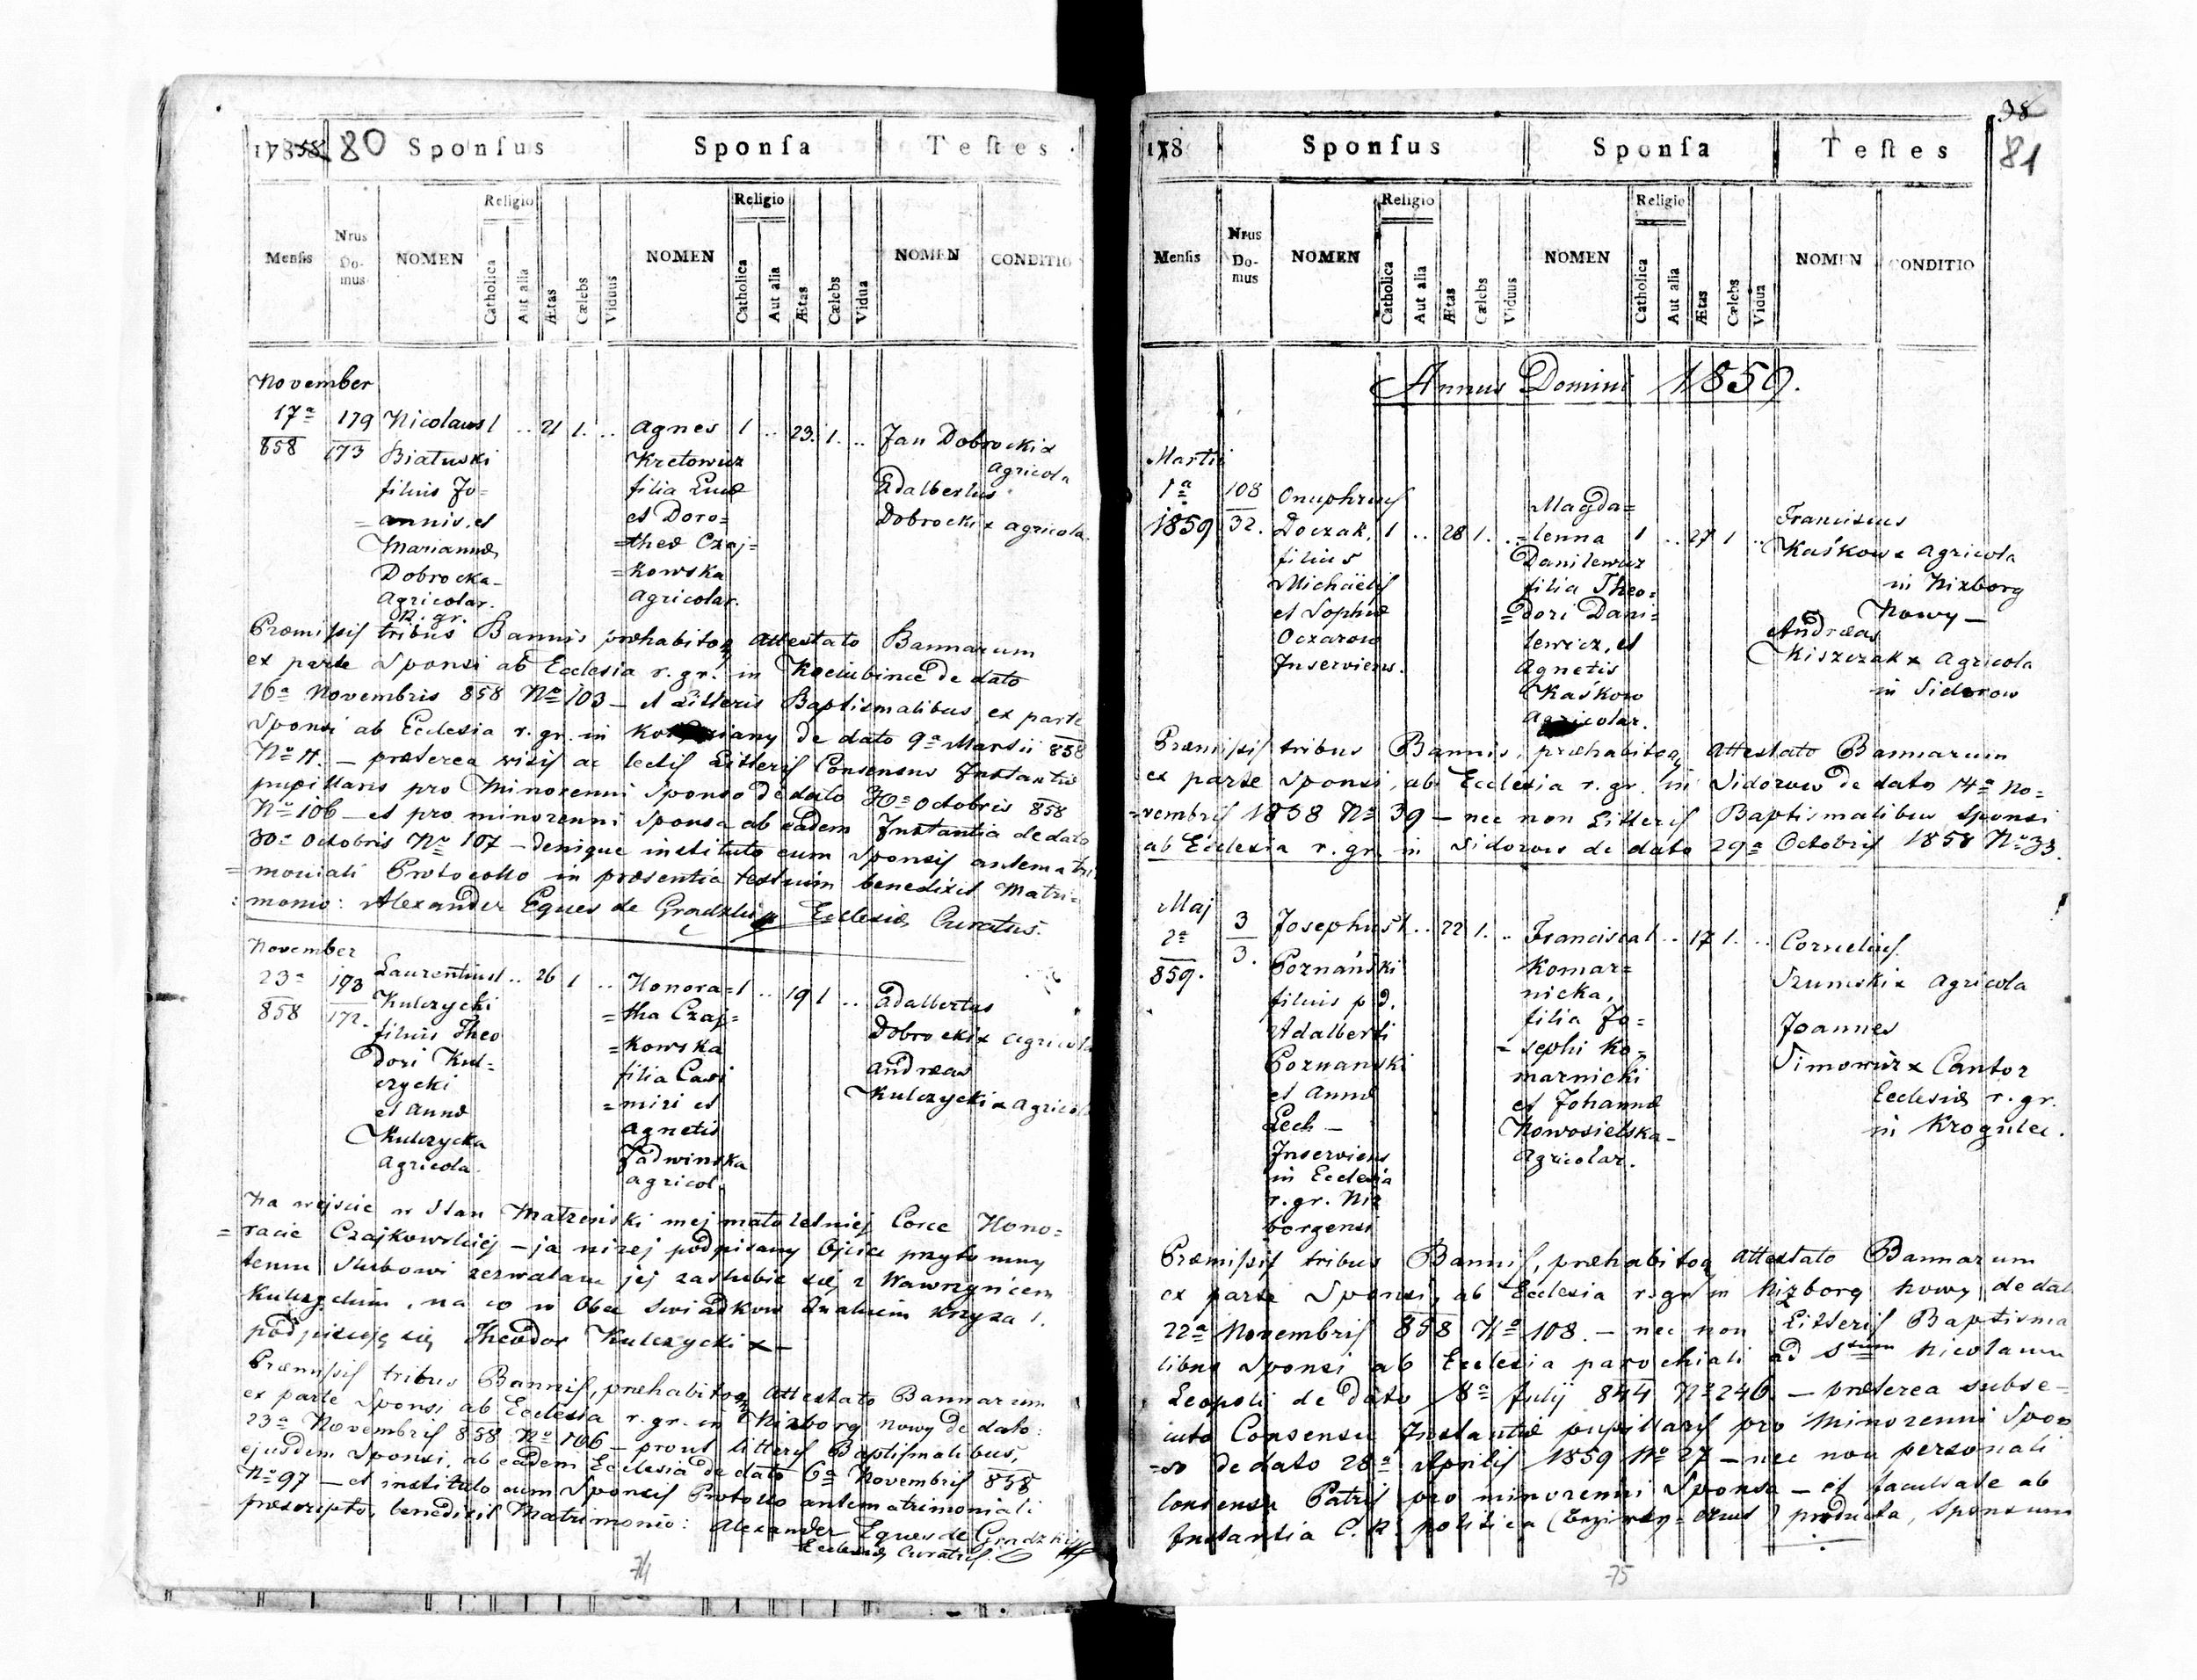 17858 80 Sponsus Sponsa Testes
Religio Religio
Mensis Nrus Do-mus NOMEN Catholica Aut alia Ætas Cælebs Viduus NOMEN Catholica Aut alia Ætas Cælebs Vidua NOMEN CONDITIO
November
17a 179 Nicolaus 1 .. 21 1. .. Agnes 1 .. 23. 1. .. Jan Dobrocki x
858 173 Białuski Kretowicz agricola
filius Jo= filia Lucæ Adalbertus
=annis, et et Doro= Dobrocki x agricola
Mariannæ =theæ Czaj=
Dobrocka - =kowska
Agricolar. Agricolar.
R. gr.
Præmissis tribus Bannis præhabitoq attestato Bannarum
ex parte Sponsi ab Ecclesia r. gr. in Kociubince de dato
16a Novembris 858 No 103 - et Litteris Baptismalibus ex parte
Sponsi ab Ecclesia r. gr. in de dato 9a Martii 858
No - præterea visis ac lectis Litteris Consensus Instantiæ
pupillaris pro Minorenni Sponso de dato 30a Octobris 858
No 106 - et pro minorenni Sponsa ab eadem Instantia de dato
30a Octobris No 107 - denique instituto cum Sponsis antematri
=moniali Protocollo in præsentia testium benedixit Matri=
=monio: Alexander Eques de Gradzki Ecclesiæ Curatus.
November
23a 193 Laurentius 1 .. 26 1 .. Honora= 1 .. 19 1 .. Adalbertus
858 172. Kulczycki =tha Czaj= Dobrocki x agricola
filius Theo =kowska Andreas
dori Kul= filia Casi Kulczycki x agricola
czycki =miri et
et Annæ Agnetis
Kulczycka Jadwinska
Agricola. agricol.
Na wejście w Stan Małzeński mej małoletniej Corce Hono=
=racie Czajkowskiéj - ja nizej podpisany Ojciec przytomny
temu Slubowi zezwalam jej zaslubic się z Wawrzyńcem
Kulczyckim, na co w Obec Swiadkow znakiem krzyza S.
podpisuję się Theodor Kulczycki x -
Præmissis tribus Bannis, præhabitoq Attestato Bannarum
ex parte Sponsi ab Ecclesia r. gr. in Nizborg nowy de dato:
23a Novembris 858 No 106 - prout litteris Baptismalibus,
ejusdem Sponsi, ab eadem Ecclesia de dato 6a Novembris 858
No 97 - et instituto cum Sponsis Protocollo antematrimoniali
præscripto, benedixit Matrimonio: Alexander Eques de Gradzki
Ecclesiæ Curatus.
74
38
178 Sponsus Sponsa Testes 81
Religio Religio
Mensis Nrus Do-mus NOMEN Catholica Aut alia Ætas Cælebs Viduus NOMEN Catholica Aut alia Ætas Cælebs Vidua NOMEN CONDITIO
Annus Domini 1859.
Martii
1a 108 Onuphrius Magda=
1859 32. Doczak, 1 .. 28 1. .. =lenna 1 .. 27 1 .. Franciscus
filius Danilewicz Kaśkow x agricola
Michaëlis filia Theo= in Nizborg
et Sophiæ =dori Dani= Nowy -
Oczarow lewicz, et Andreas
Inserviens. Agnetis Kiszczak x agricola
Kaśkow in Sidorow
Agricolar.
Præmissis tribus Bannis, præhabitoq Attestato Bannarum
ex parte Sponsi, ab Ecclesia r. gr. in Sidorow de dato 14a No=
=vembris 1858 No 39 - nec non Litteris Baptismalibus Sponsi
ab Ecclesia r. gr. in Sidorow de dato 29a Octobris 1858 No 33.
Maj
2a 3 Josephus 1 .. 22 1. .. Francisca 1 .. 17 1. .. Cornelius
859. 3. Poznański Komar= Szumski x agricola
filius p d. nicka,
Adalberti filia Jo= Joannes
Poznanski =sephi Ko= Simowicz x Cantor
et Annæ marnicki Ecclesiæ r. gr.
Lech - et Johannæ in Krogulec.
Inserviens Nowosielska -
in Ecclesia Agricolar.
r. gr. Niz
borgensi
Præmissis tribus Bannis, præhabitoq Attestato Bannarum
ex parte Sponsi, ab Ecclesia r. gr. in Nizborg nowy, de dat
22a Novembris 858 No 108. - nec non Litteris Baptisma
libus Sponsi ab Ecclesia parochiali ad Stum Nicolaum
Leopoli de dato 8a Julij 844 No 246 - præterea subse=
cuto Consensu Instantiæ pupillaris pro Minorenni Spon
=so de dato 28a Aprilis 1859 No 27 - nec non personali
Consensu Patris pro minorenni Sponsa - et facultate ab
Instantia C. R. politica producta, Sponsum
75